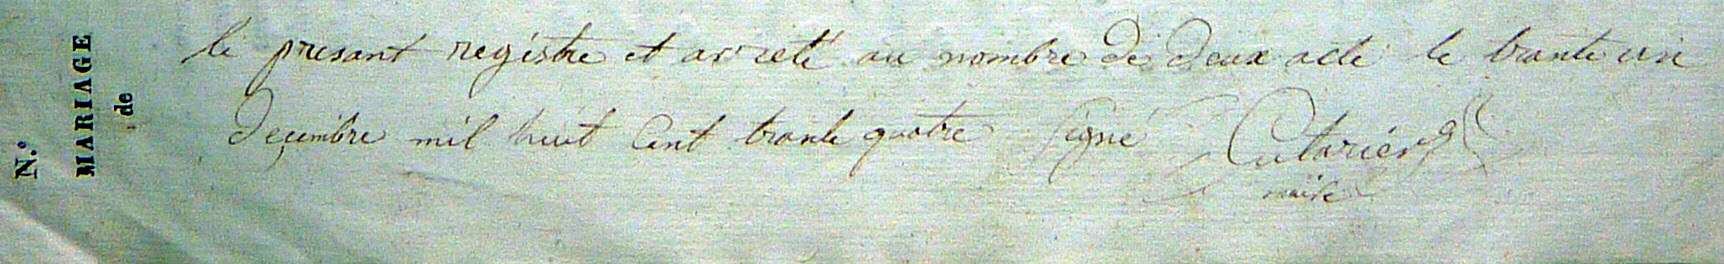 N.°
MARIAGE
de
le presant registre et arreté au nombre de deux acte le trante un
deçembre mil huit Cent trante quatre signé
maire